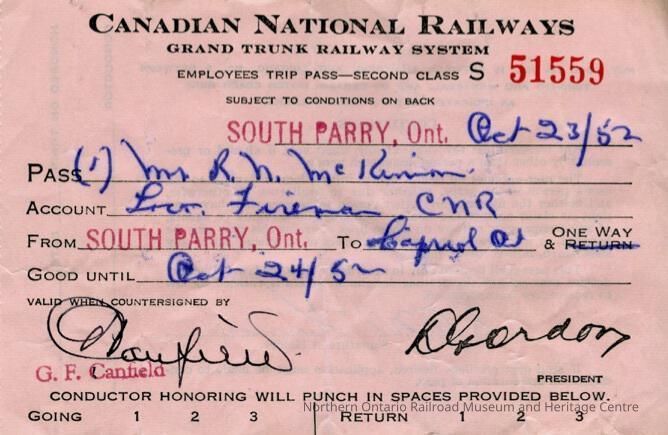 CANADIAN NATIONAL RAILWAYS
GRAND TRUNK RAILWAY SYSTEM
EMPLOYEES TRIP PASS—SECOND CLASS S 51559
SUBJECT TO CONDITIONS ON BACK
SOUTH PARRY, Ont. Oct 23/52
PASS (1) Mr. R. N. McKinnon
ACCOUNT Loco. Fireman CNR
FROM SOUTH PARRY, Ont. TO Capreol Ont & ONE WAY RETURN
GOOD UNTIL Oct 24/52
VALID WHEN COUNTERSIGNED BY
GCanfield. DGordon
G. F. Canfield
PRESIDENT
CONDUCTOR HONORING WILL PUNCH IN SPACES PROVIDED BELOW.
Northern Ontario Railroad Museum and Heritage Centre
GOING 1 2 3 RETURN 1 2 3